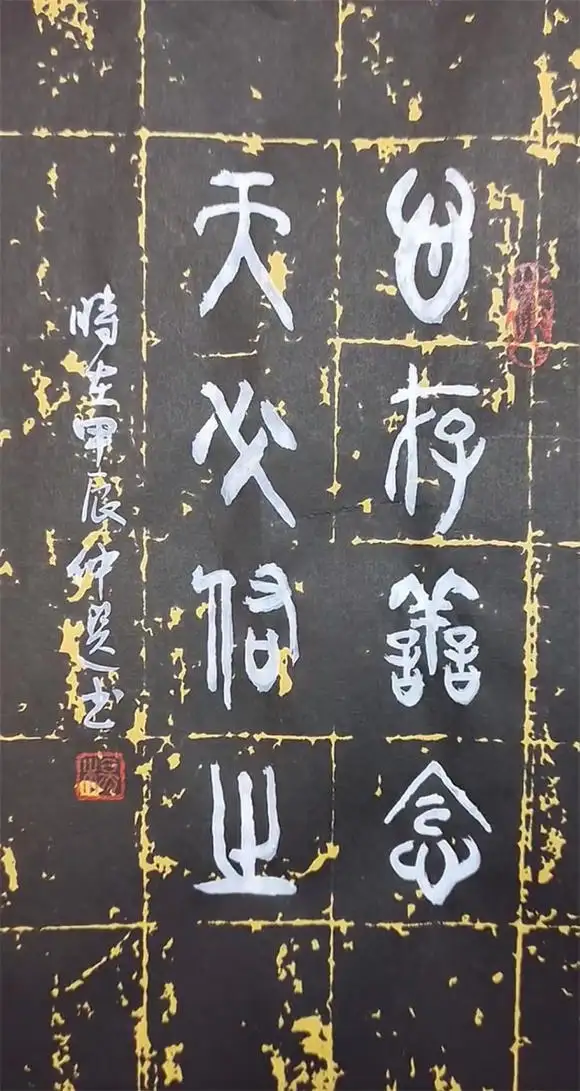 心存善念
天必佑之
時在甲辰仲夏书